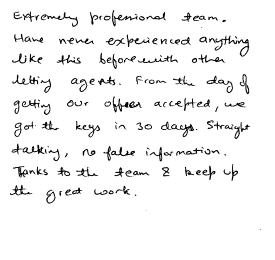 Extremely professional team.
Have never experienced anything
like this before with other
letting agents. From the day of
getting our offer accepted, we
got the keys in 30 days. Straight
talking, no false information.
Thanks to the team & keep up
the great work.